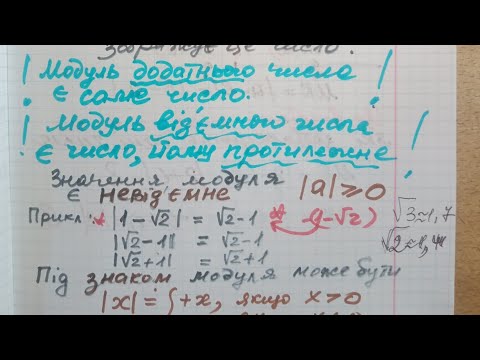 Зображує це число.
! Модуль додатнього числа !
є саме число.
! Модуль відємного числа !
є число, йому протилежне
Значення модуля |a|⩾0
є невідємне
Прикл: * |1-√2| = √2-1 -(1-√2) √3≈1,7
|√2-1| = √2-1 √2≈1,41
|√2+1| = √2+1
Під знаком модуля може бути
|x| = { +x, якщо x>0